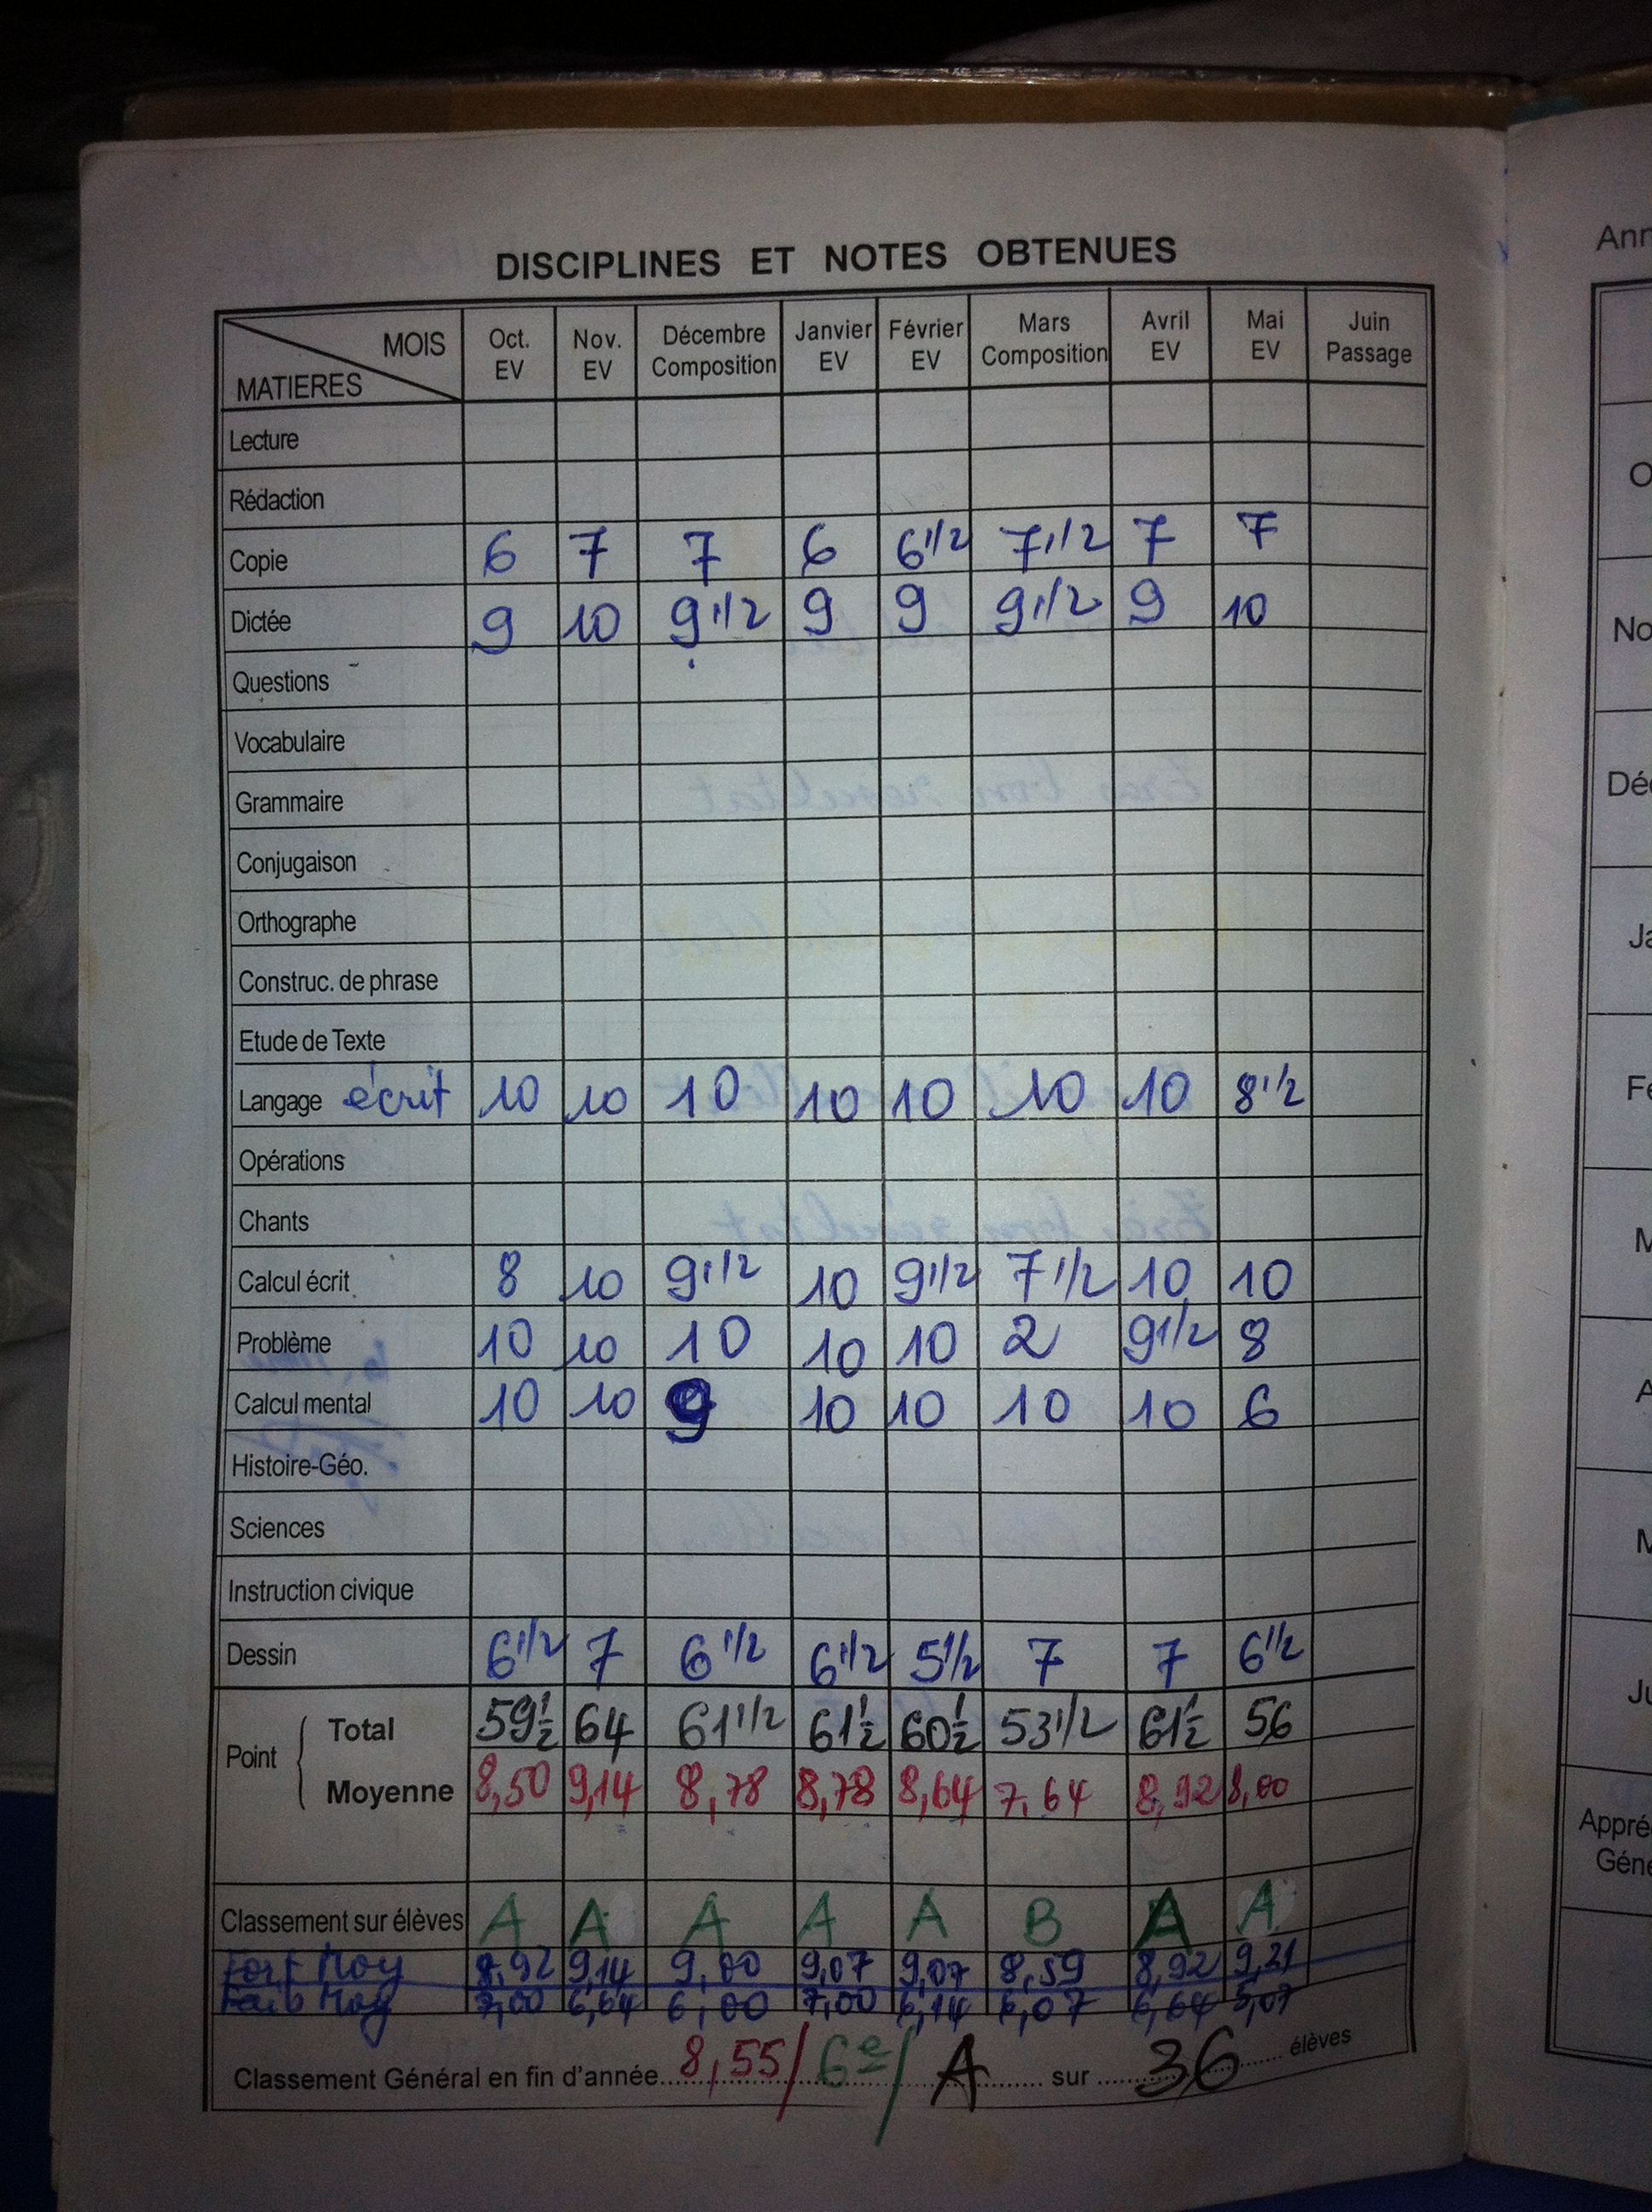 DISCIPLINES ET NOTES OBTENUES
MOIS MATIERES Oct. EV Nov. EV Décembre Composition Janvier EV Février EV Mars Composition Avril EV Mai EV Juin Passage
Lecture
Rédaction
Copie 6 7 7 6 6 1/2 7 1/2 7 7
Dictée 9 10 9 1/2 9 9 9 1/2 9 10
Questions
Vocabulaire
Grammaire
Conjugaison
Orthographe
Construc. de phrase
Etude de Texte
Langage écrit 10 10 10 10 10 10 10 8 1/2
Opérations
Chants
Calcul écrit 8 10 9 1/2 10 9 1/2 7 1/2 10 10
Problème 10 10 10 10 10 2 9 1/2 8
Calcul mental 10 10 9 10 10 10 10 6
Histoire-Géo.
Sciences
Instruction civique
Dessin 6 1/2 7 6 1/2 6 1/2 5 1/2 7 7 6 1/2
Point
Total 59 1/2 64 61 1/2 61 1/2 60 1/2 53 1/2 61 1/2 56
Moyenne 8,50 9,14 8,78 8,78 8,64 7,64 8,92 8,00
Classement sur élèves A A A A A B A A
Fort Moy 8,92 9,14 9,00 9,07 9,07 8,59 8,92 9,21
Faib Moy 7,00 6,64 6,00 7,00 6,14 6,07 6,64 5,07
Classement Général en fin d'année 8,55/6e/ A sur 36 élèves
Ann
O
No
Déc
Ja
Fé
M
A
M
Ju
Appré
Géné